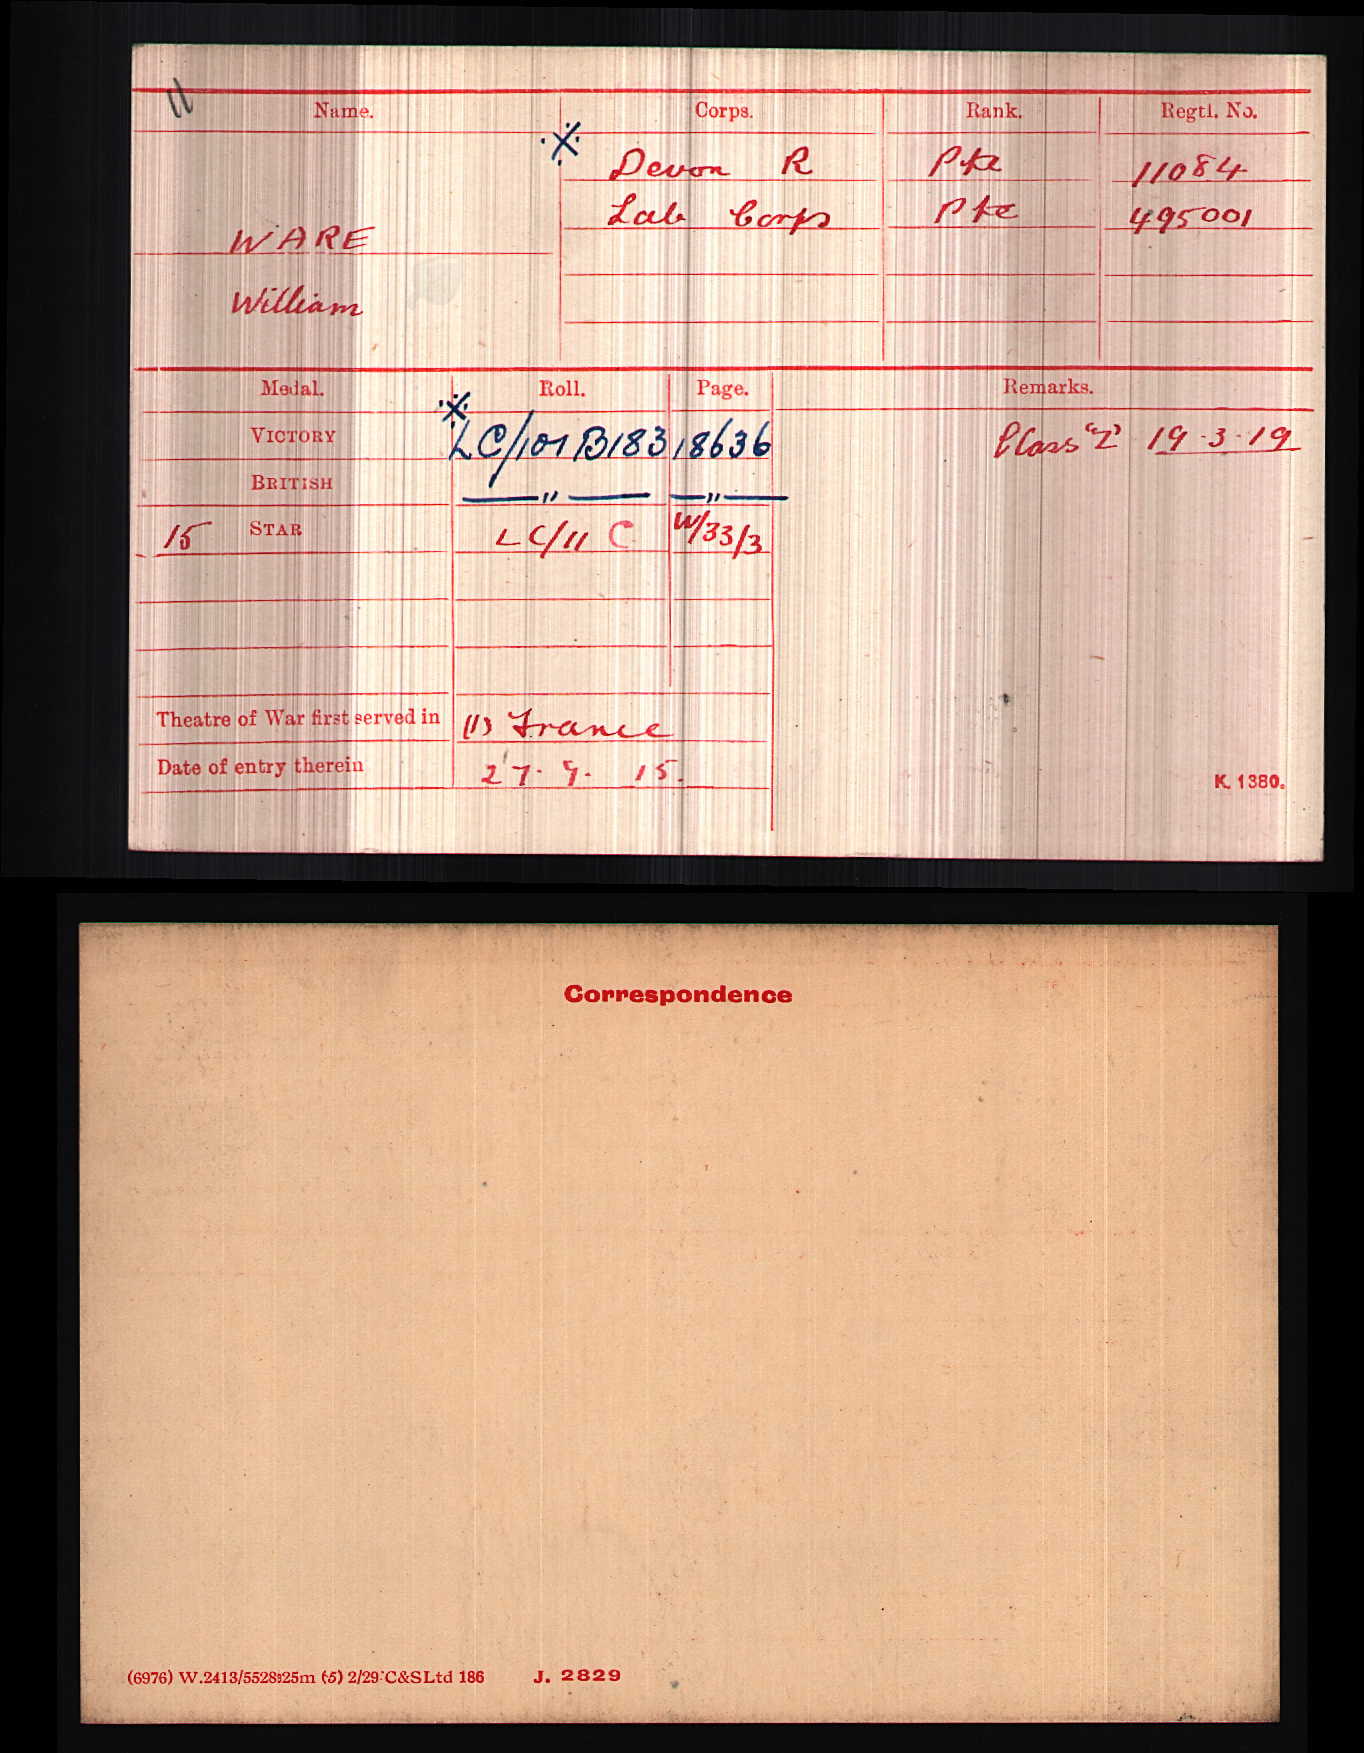 Name. Corps. Rank. Regtl. No.
※ Devon R Pte 11084
Lab Corps Pte 495001
WARE
William
Medal. Roll. Page. Remarks.
※
VICTORY LC/101 B183 18636 Class "Z" 19.3.19
BRITISH —"— —"—
15 STAR LC/11 C W/33/3
Theatre of War first served in (1) France
Date of entry therein 27. 9. 15.
K. 1380.
Correspondence
(6976) W.2413/5528 25m (5) 2/29 C&S Ltd 186 J. 2829